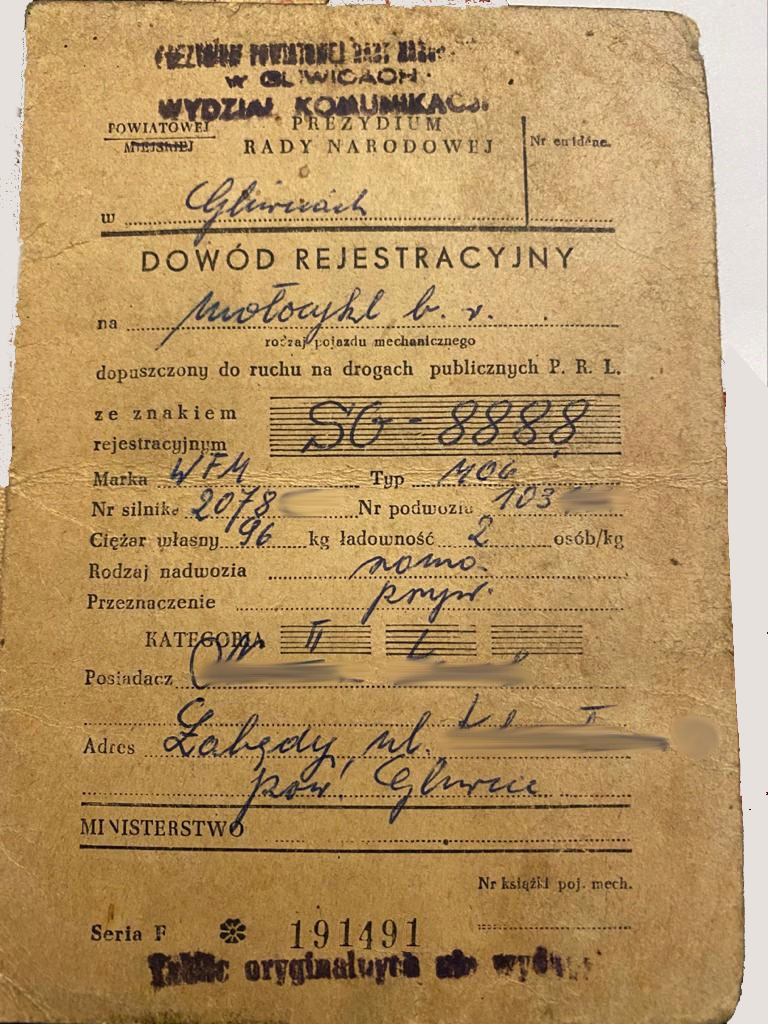 PREZYDIUM POWIATOWEJ RADY
W GLIWICACH
WYDZIAŁ KOMUNIKACJI
POWIATOWEJ
MIEJSKIEJ
PREZYDIUM
RADY NARODOWEJ
Nr ewidenc.
w Gliwicach
DOWÓD REJESTRACYJNY
na Motocykl b. v.
rodzaj pojazdu mechanicznego
dopuszczony do ruchu na drogach publicznych P. R. L.
ze znakiem rejestracyjnym SG-8888
Marka WFM Typ M06
Nr silnika 2078 Nr podwozia 103
Ciężar własny 96 kg ładowność 2 osób/kg
Rodzaj nadwozia
Przeznaczenie pryw.
KATEGORIA II L
Posiadacz
Adres Łabędy, ul.
pow. Gliwice
MINISTERSTWO
Nr książki poj. mech.
Seria F 191491
Tablic oryginalnych nie